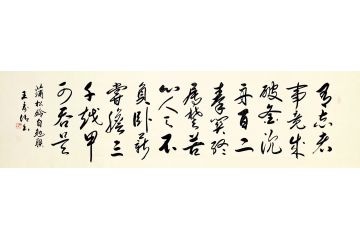 有志者
事竟成
破釜沉
舟百二
秦関終
属楚苦
心人天不
負卧薪
嘗膽三
千越甲
可吞吴
蒲松龄自勉联
王